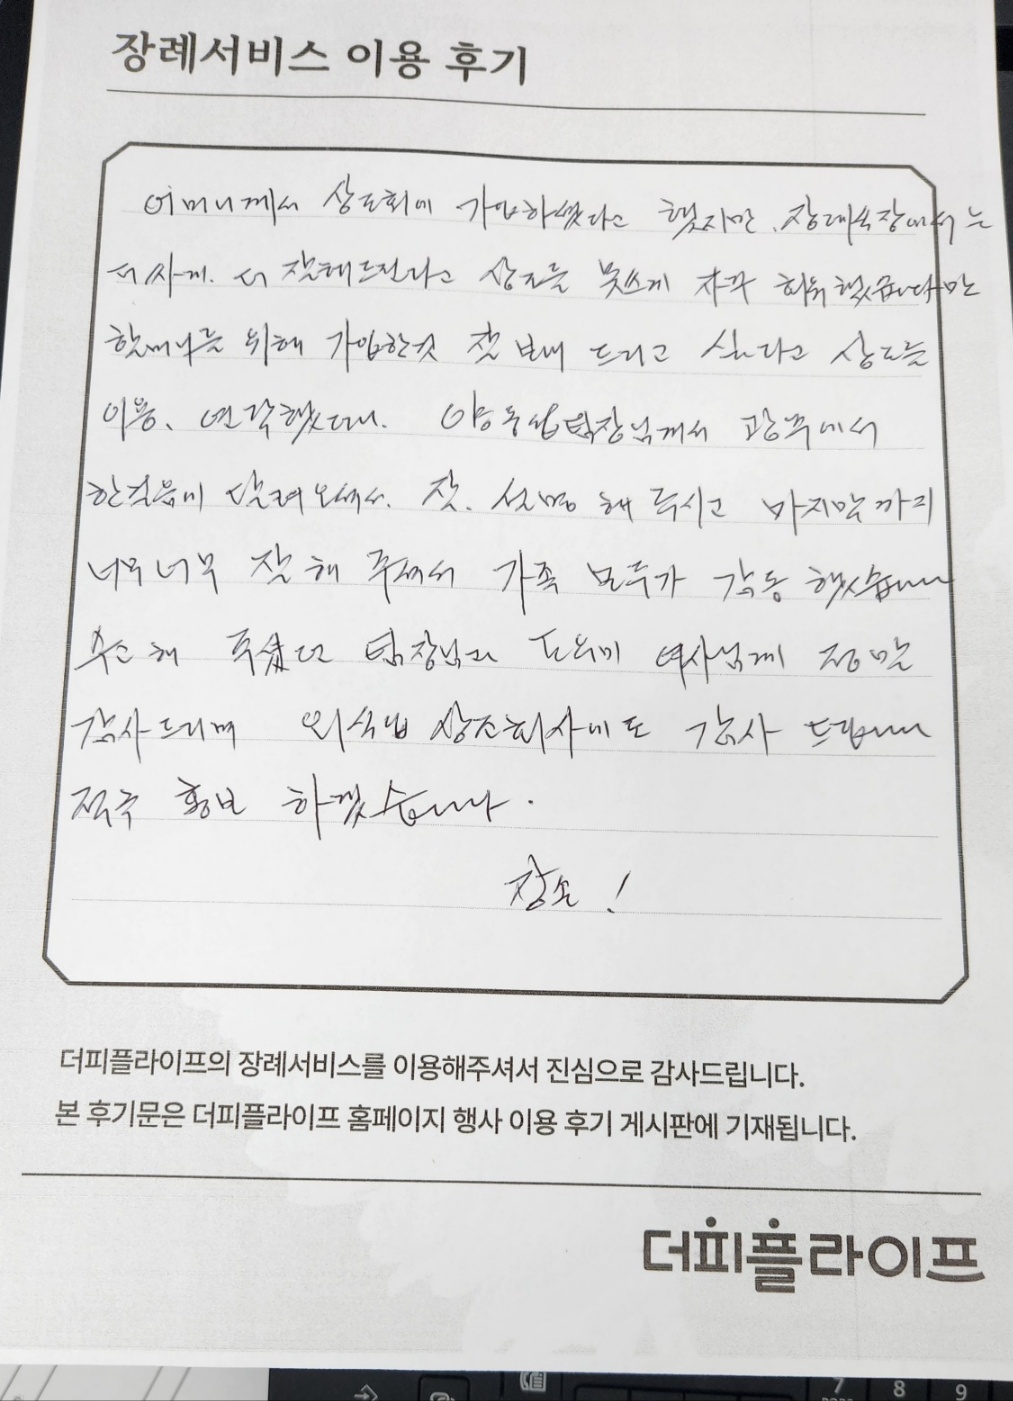 장례서비스 이용 후기
어머니께서 상조회에 가입하셨다고 했지만, 장례식장에서는
더 싸게. 더 잘해드린다고 상조를 못쓰게 자꾸 했습니다만
할머니를 위해 가입한것 잘 보내 드리고 싶다고 상조를
이용, 연락했다. 양동섭팀장님께서 광주에서
한걸음에 달려오셔서. 잘. 설명 해 주시고 마지막까지
너무너무 잘 해 주셔서 가족 모두가 감동 했습니다
수고해 주셨던 팀장님과 도우미 여사님께 정말
감사드리며 상조회사에도 감사 드립니다
적극 홍보 하겠습니다.
!
더피플라이프의 장례서비스를 이용해주셔서 진심으로 감사드립니다.
본 후기문은 더피플라이프 홈페이지 행사 이용 후기 게시판에 기재됩니다.
더피플라이프
7 8 9